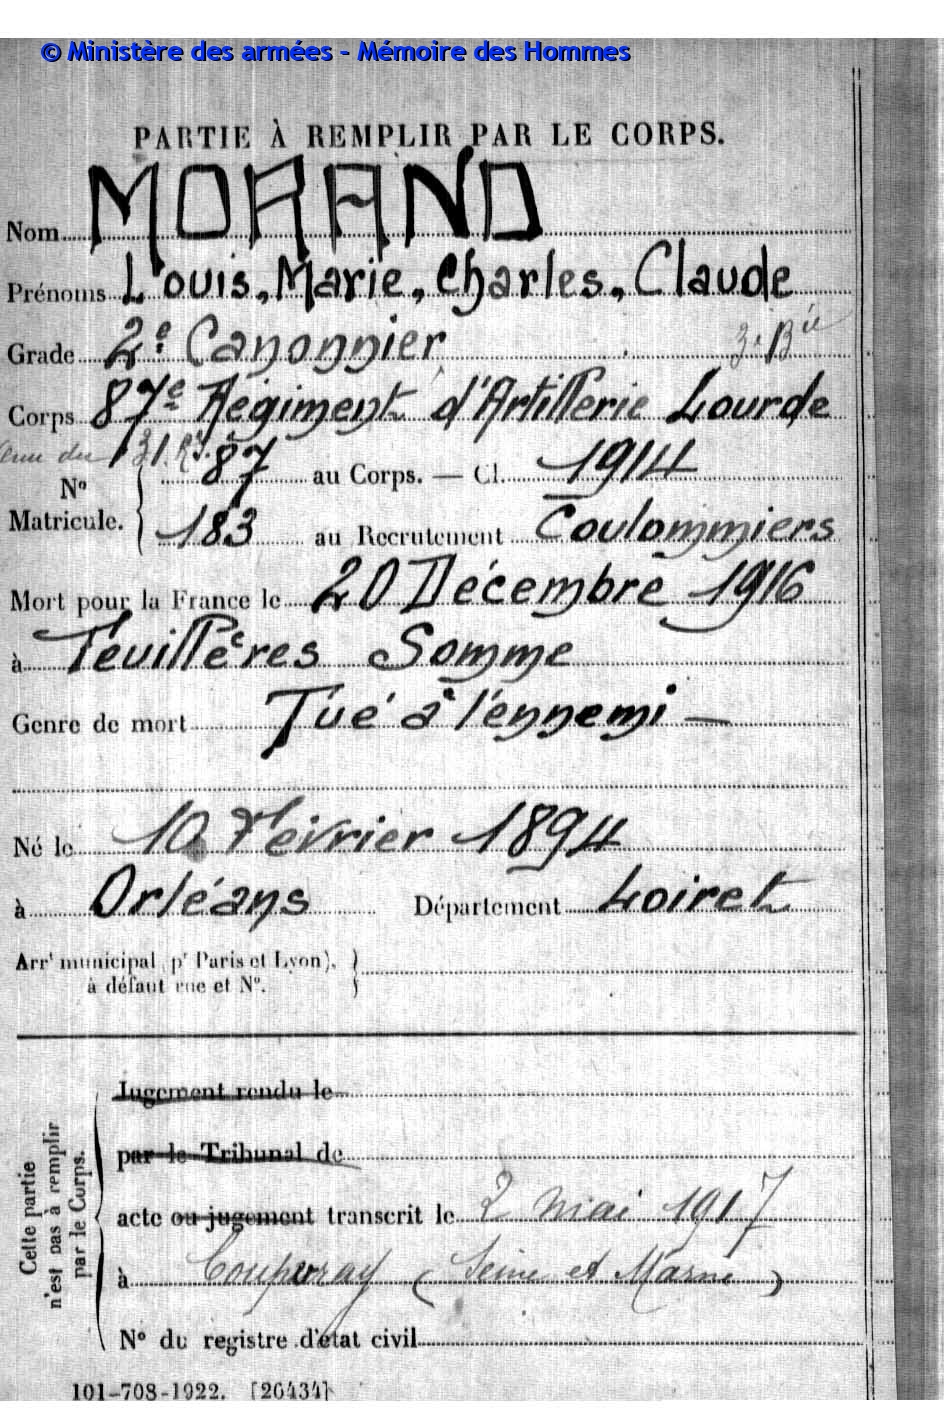 © Ministère des armées - Mémoire des Hommes
PARTIE À REMPLIR PAR LE CORPS.
Nom MORAND
Prénoms Louis, Marie, Charles, Claude
Grade 2e Canonnier 3e Bie
Corps 87e Régiment d'Artillerie Lourde
du 131. R.I.
87 au Corps. — Cl. 1914
No
Matricule.
183 au Recrutement Coulommiers
Mort pour la France le 20 Décembre 1916
à Feuillères Somme
Genre de mort Tué à l'ennemi —
Né le 10 Février 1894
à Orléans Département Loiret
Arrt municipal (pr Paris et Lyon),
à défaut rue et No.
Cette partie
n'est pas à remplir
par le Corps.
Jugement rendu le
par le Tribunal de
acte ou jugement transcrit le 2 mai 1917
à Coupvray (Seine et Marne)
No du registre d'état civil
101-708-1922. [26434]